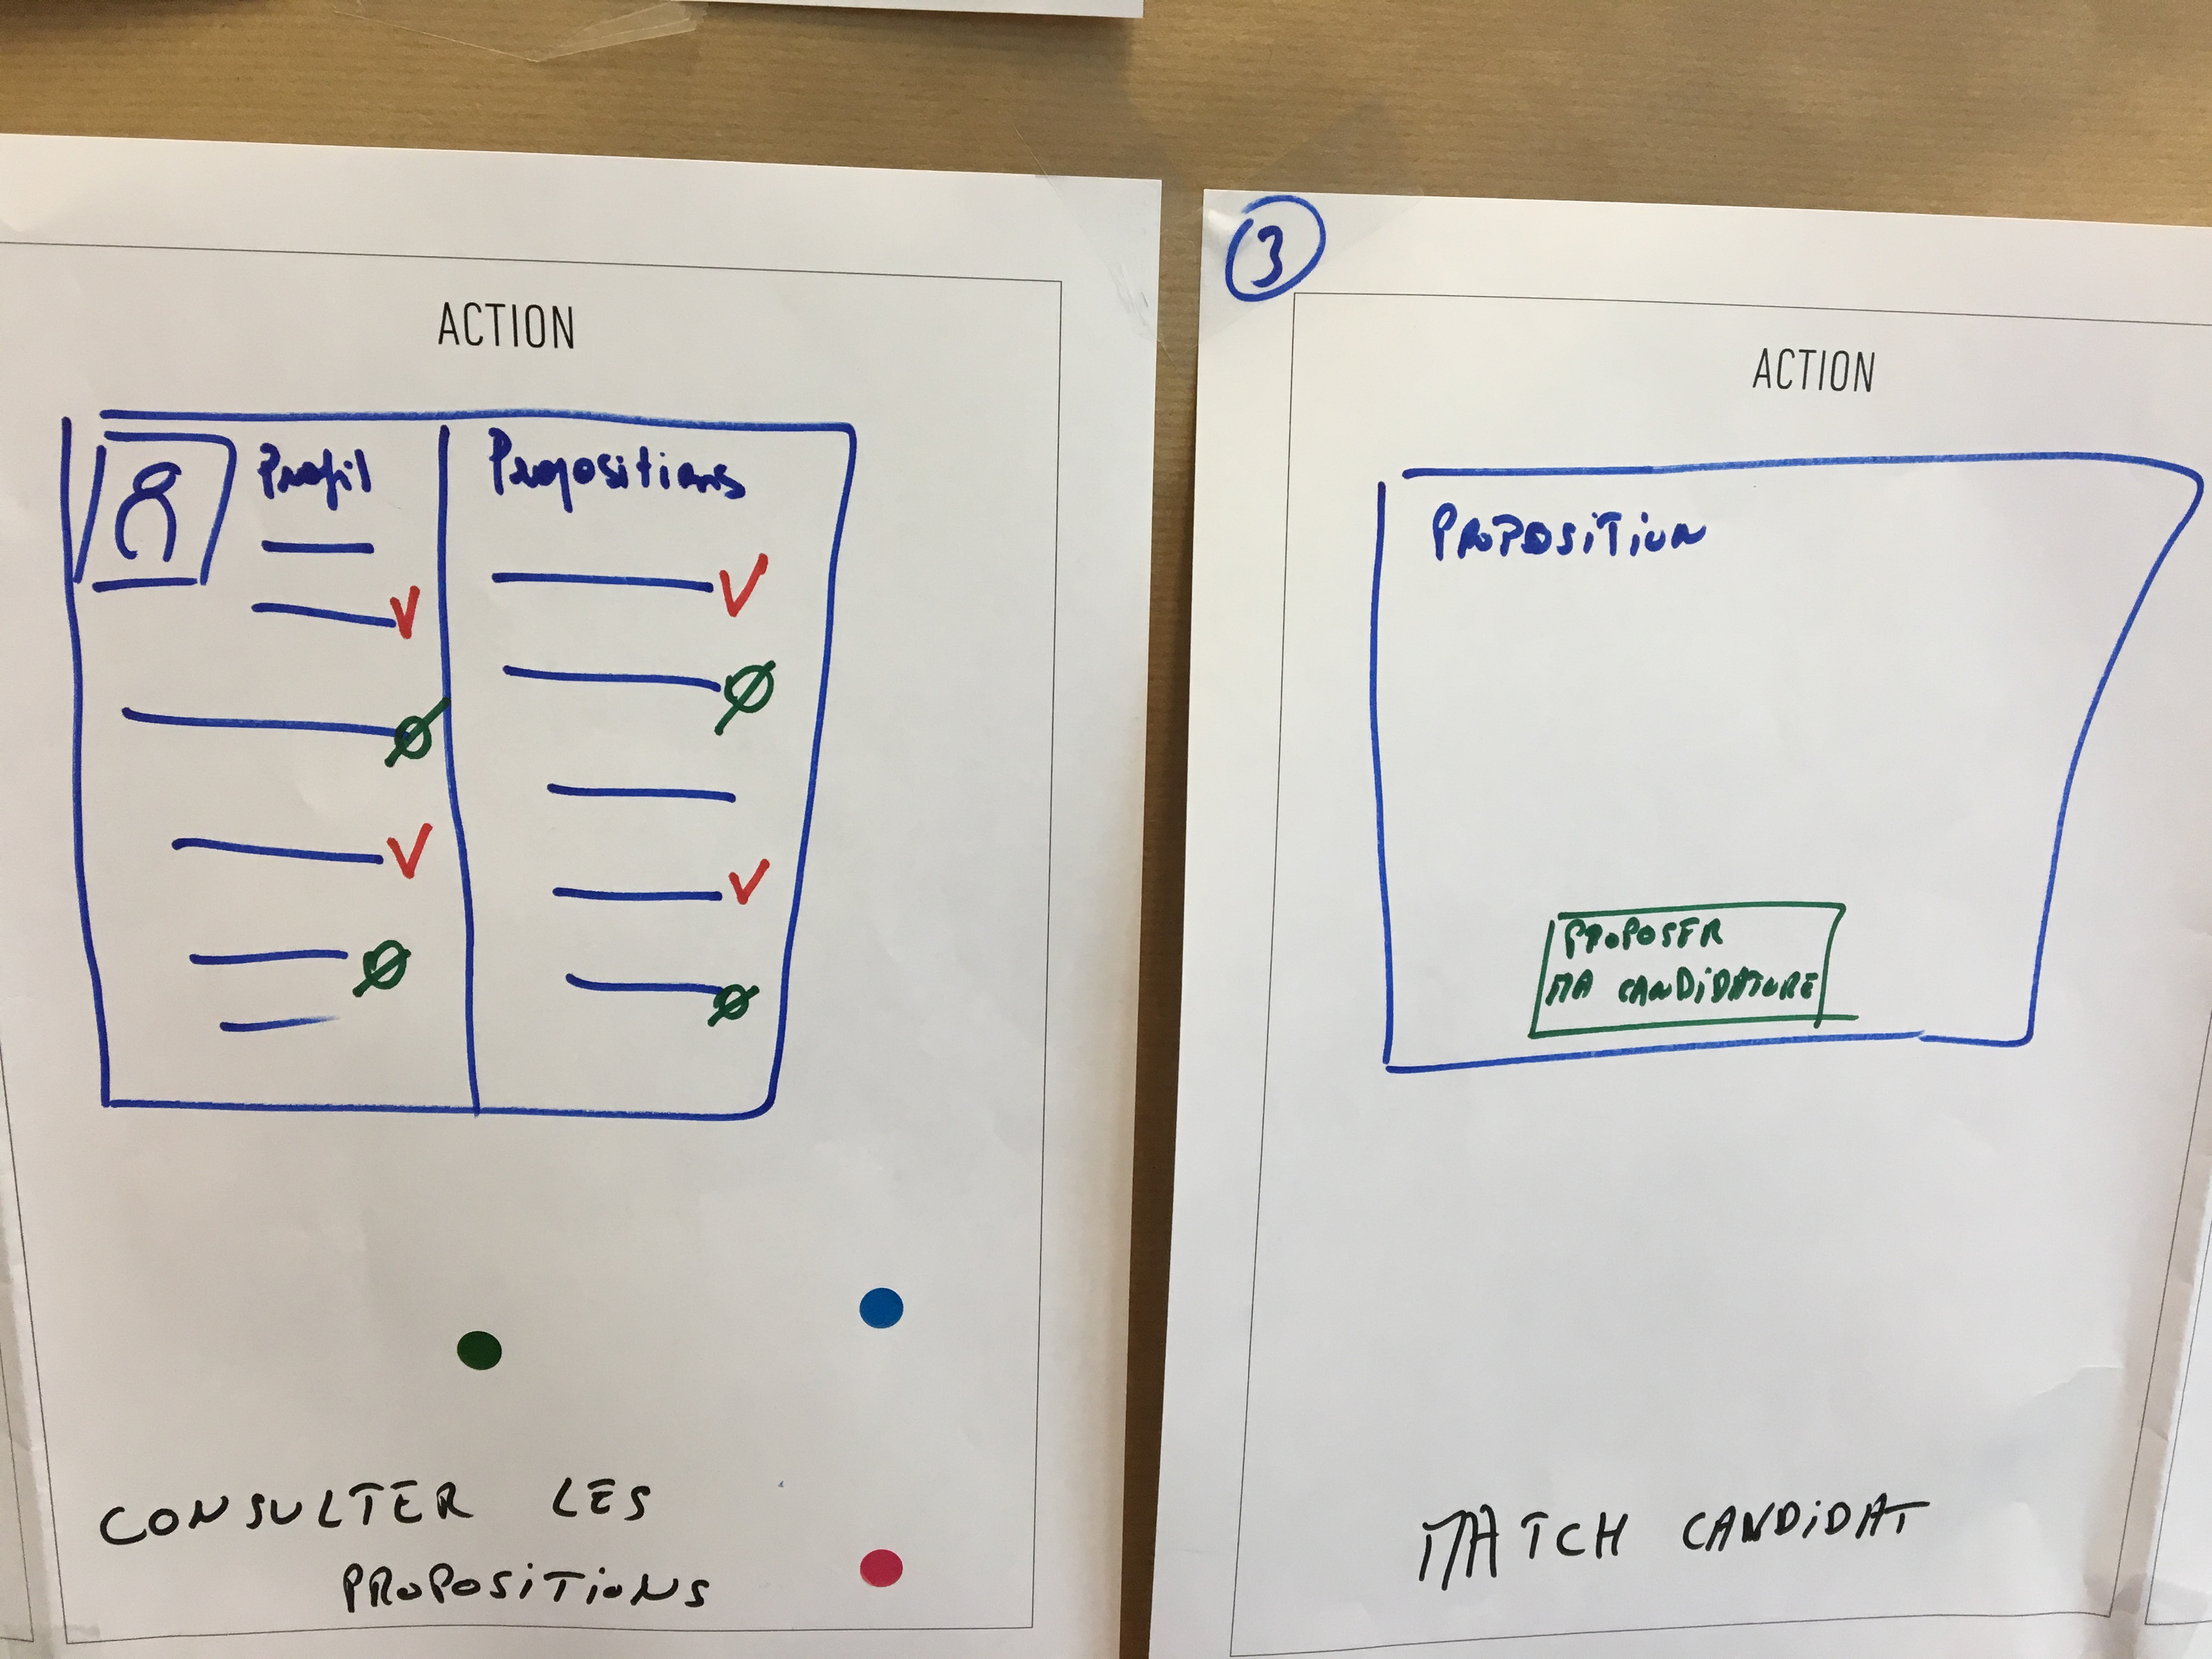 ACTION
Profil
Propositions
CONSULTER LES
PROPOSITIONS
3
ACTION
PROPOSITION
PROPOSER
MA CANDIDATURE
MATCH CANDIDAT